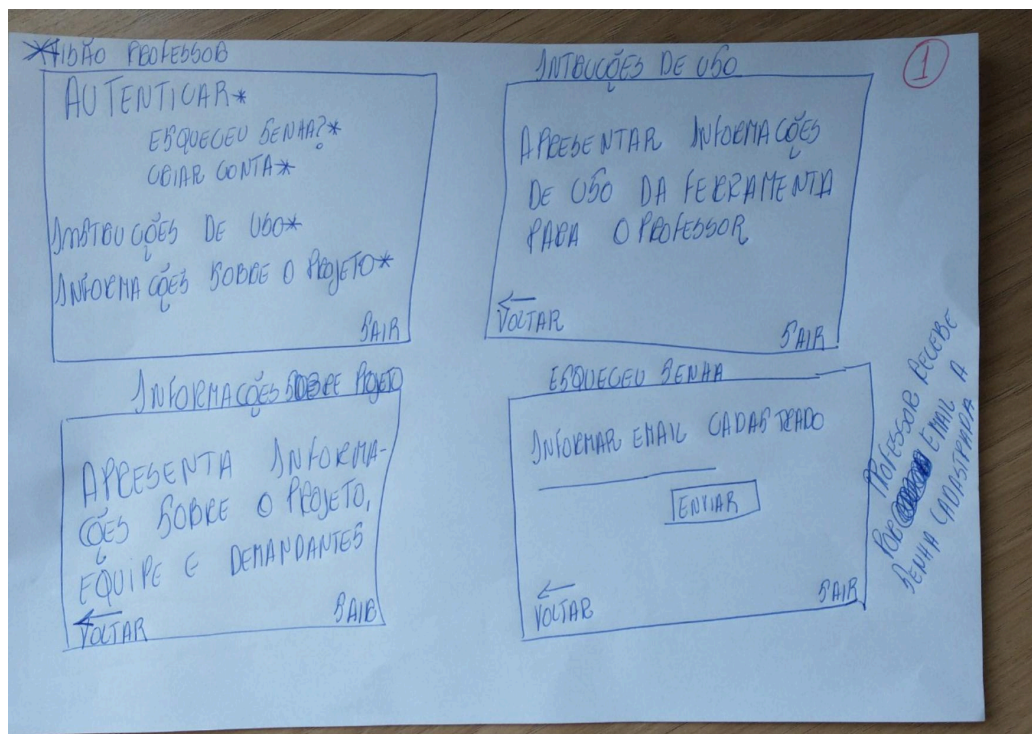 *VISÃO PROFESSOR
AUTENTICAR*
ESQUECEU SENHA?*
CRIAR CONTA*
INSTRUÇÕES DE USO*
INFORMAÇÕES SOBRE O PROJETO*
SAIR
INTRUÇÕES DE USO
1
APRESENTAR INFORMAÇÕES
DE USO DA FERRAMENTA
PARA O PROFESSOR
VOLTAR
SAIR
INFORMAÇÕES SOBRE PROJETO
APRESENTA INFORMA-
ÇÕES SOBRE O PROJETO,
EQUIPE E DEMANDANTES
VOLTAR
SAIR
ESQUECEU SENHA
INFORMAR EMAIL CADASTRADO
ENVIAR
VOLTAR
SAIR
PROFESSOR RECEBE
POR EMAIL A
SENHA CADASTRADA